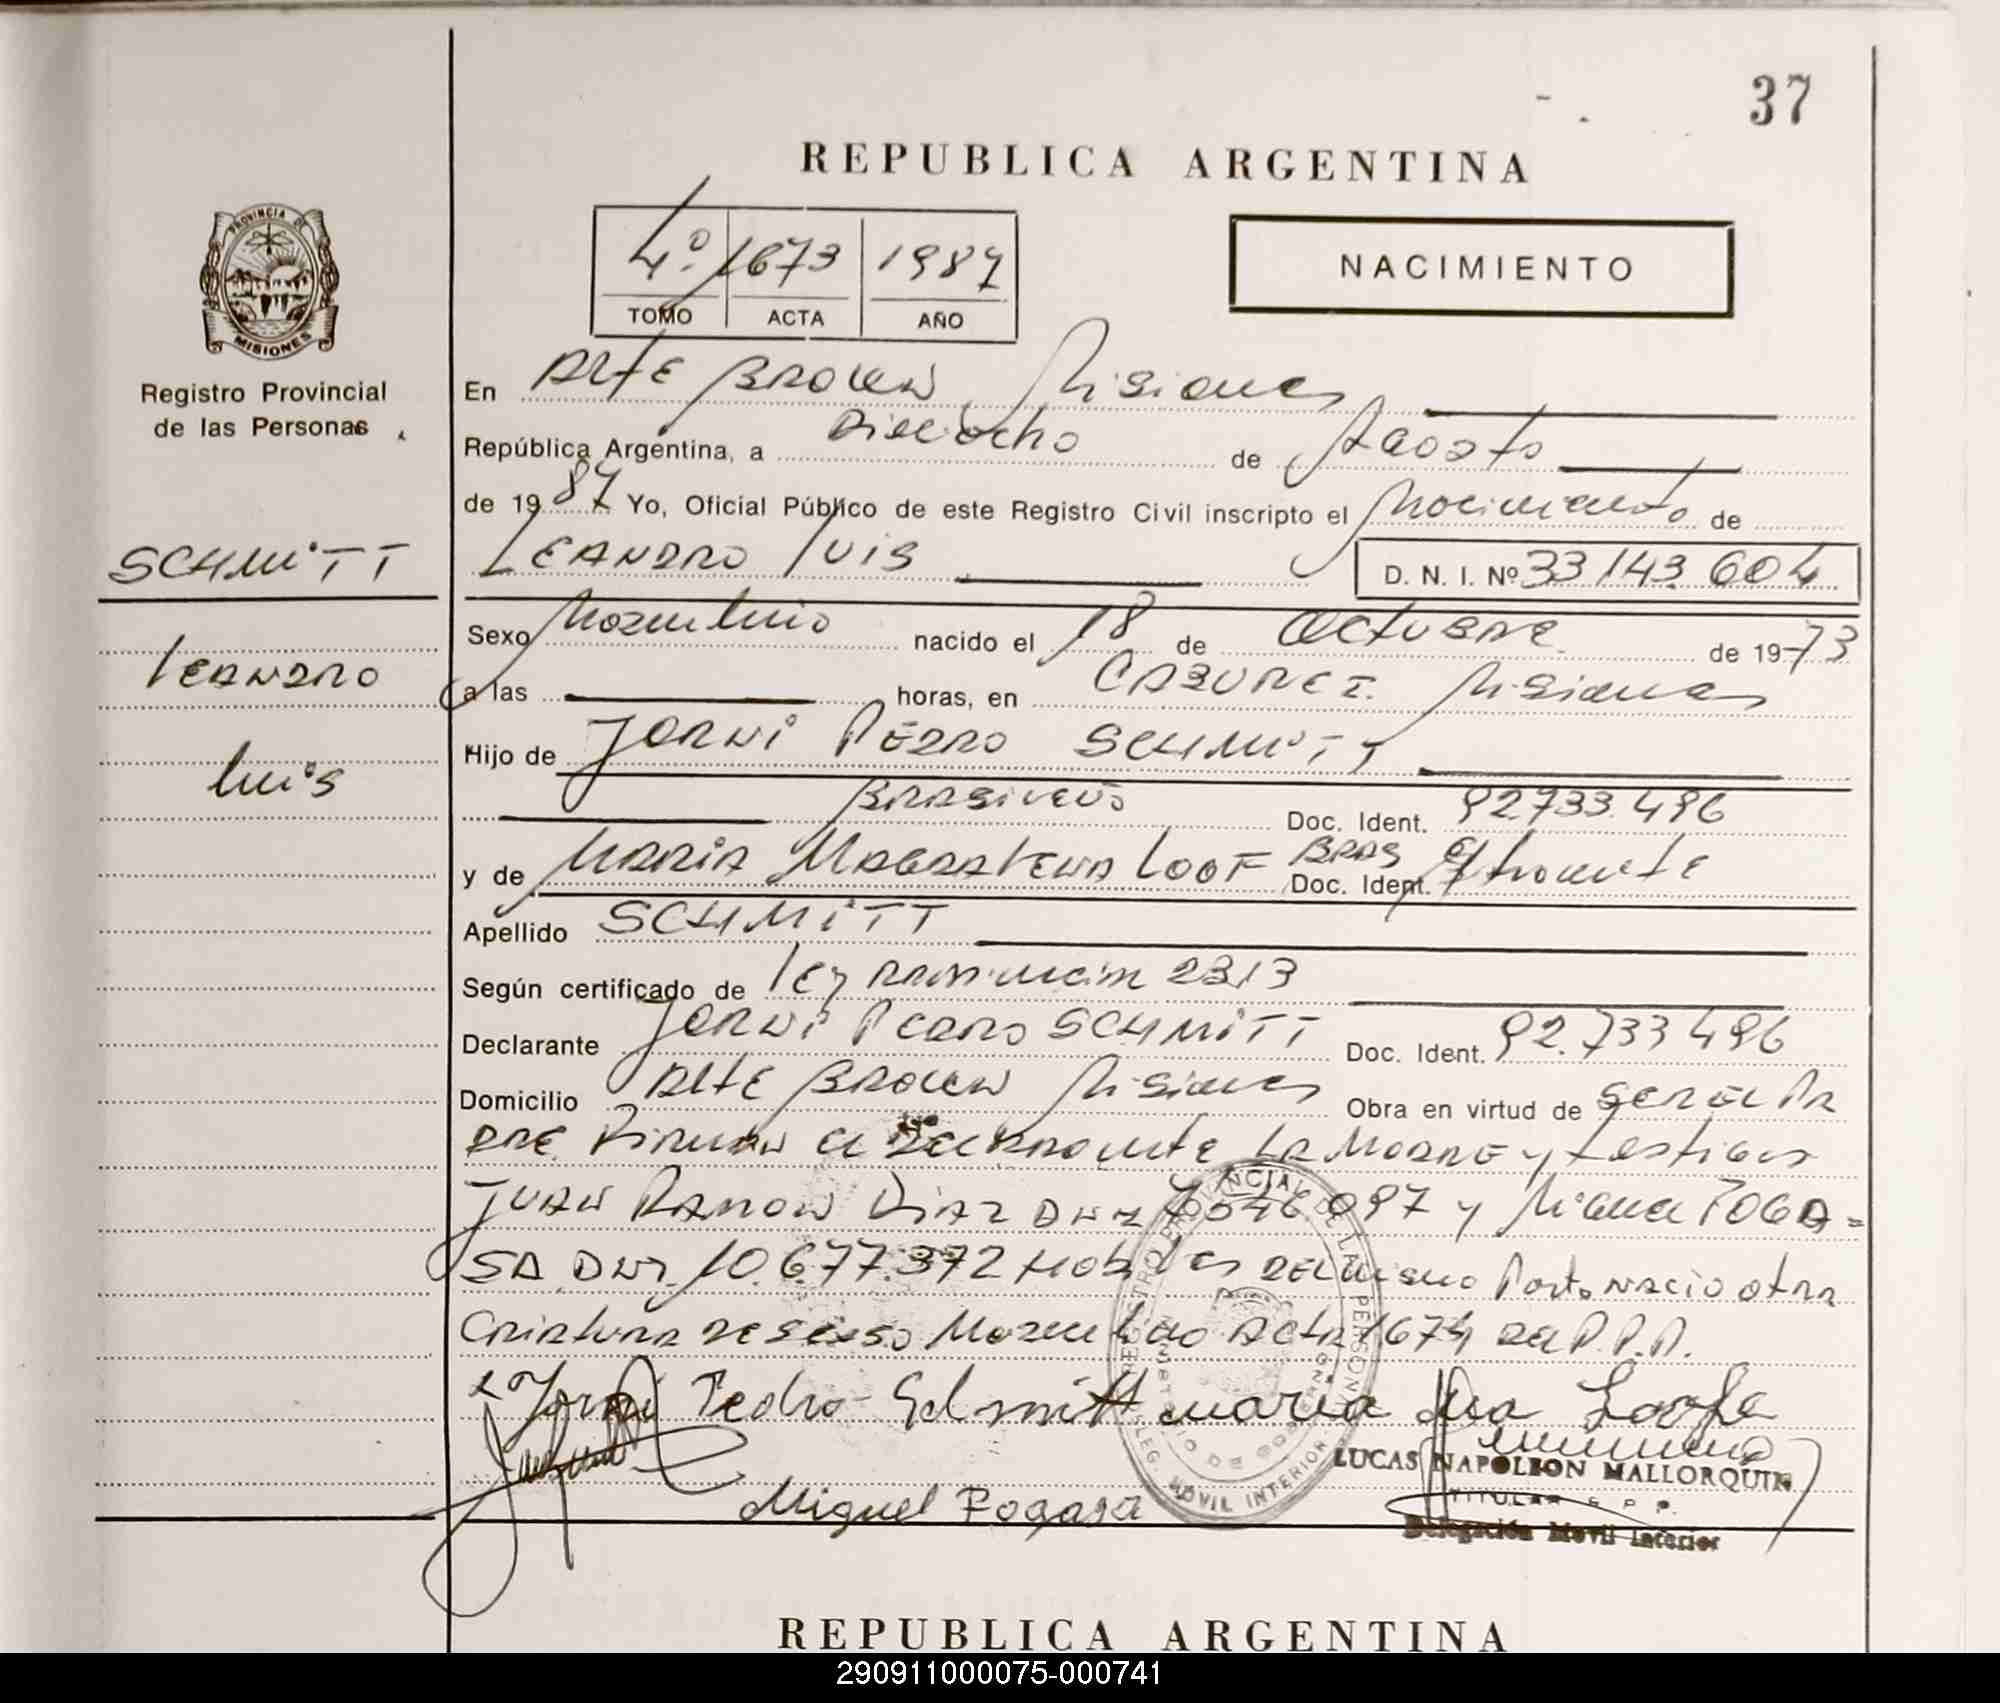 37
REPUBLICA ARGENTINA
4º 1673 1987
TOMO ACTA AÑO
NACIMIENTO
PROVINCIA DE
MISIONES
Registro Provincial
de las Personas
En Alte Brown Misiones
República Argentina, a Dieciocho de Agosto
de 1987 Yo, Oficial Público de este Registro Civil inscripto el Nacimiento de
SCHMITT
LEANDRO LUIS D. N. I. Nº 33 143 604
Sexo Masculino nacido el 18 de OCTUBRE de 1973
LEANDRO
a las horas, en CABUREI. Misiones
Hijo de JORNI PEDRO SCHMITT
Luis
BRASILEÑO Doc. Ident. 92.733.496
y de MARIA MAGDALENA LOOF BRAS Doc. Ident.
Apellido SCHMITT
Según certificado de Ley 2313
Declarante JORNI PEDRO SCHMITT Doc. Ident. 92.733 496
Domicilio Alte Brown Misiones Obra en virtud de SER EL PA
DRE Firman el Declarante LA MADRE y testigos
JUAN RAMON DIAZ DNI 7546 097 y Miguel FOGA=
SA DNI. 10.677.372 DEL mismo Parto NACIO otra
Criatura DE SEXSO Masculino Acta 1674 del P.P.D.
Jorni Pedro Schmitt maria Loofe
LUCAS NAPOLEON MALLORQUIN
Miguel Fogasa
TITULAR
Delegación Movil Interior
REGISTRO PROVINCIAL DE LAS PERSONAS
DELEG. MOVIL INTERIOR
MINISTERIO DE GOBIERNO
REPUBLICA ARGENTINA
290911000075-000741